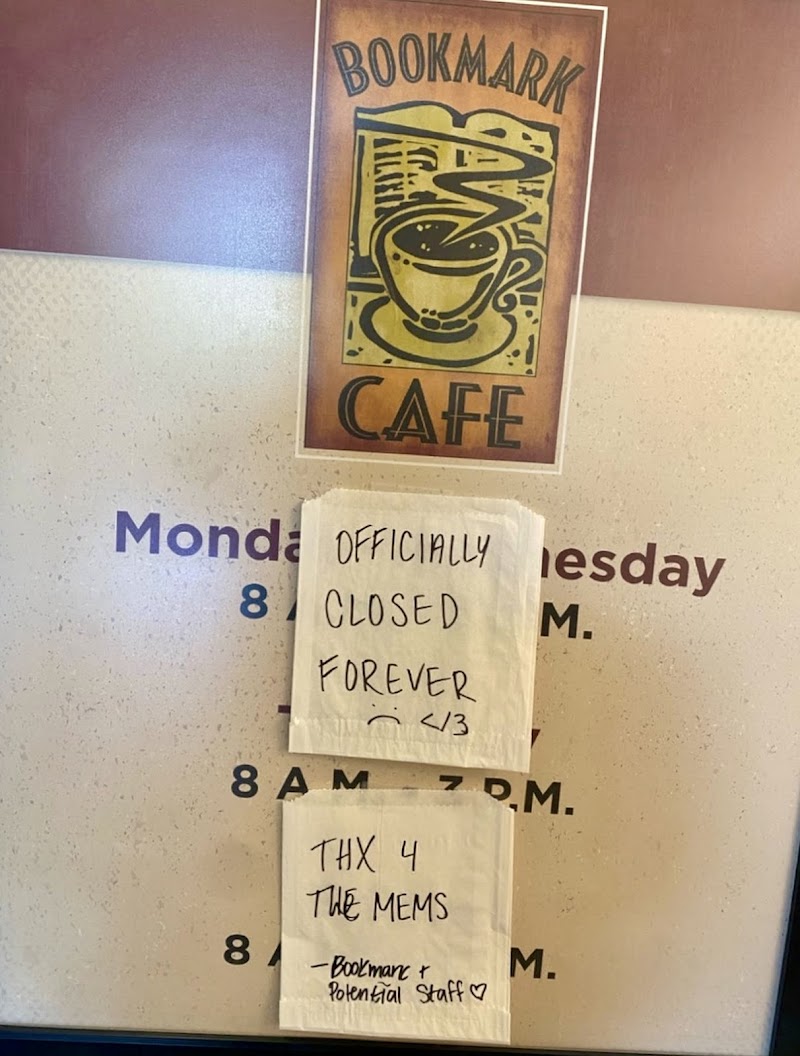 BOOKMARK
CAFE
Monda nesday
8 A M.
OFFICIALLY
CLOSED
FOREVER
:( </3
8 A.M. - 3 P.M.
THX 4
THE MEMS
8 A M.
—Bookmark +
Potential Staff ♡